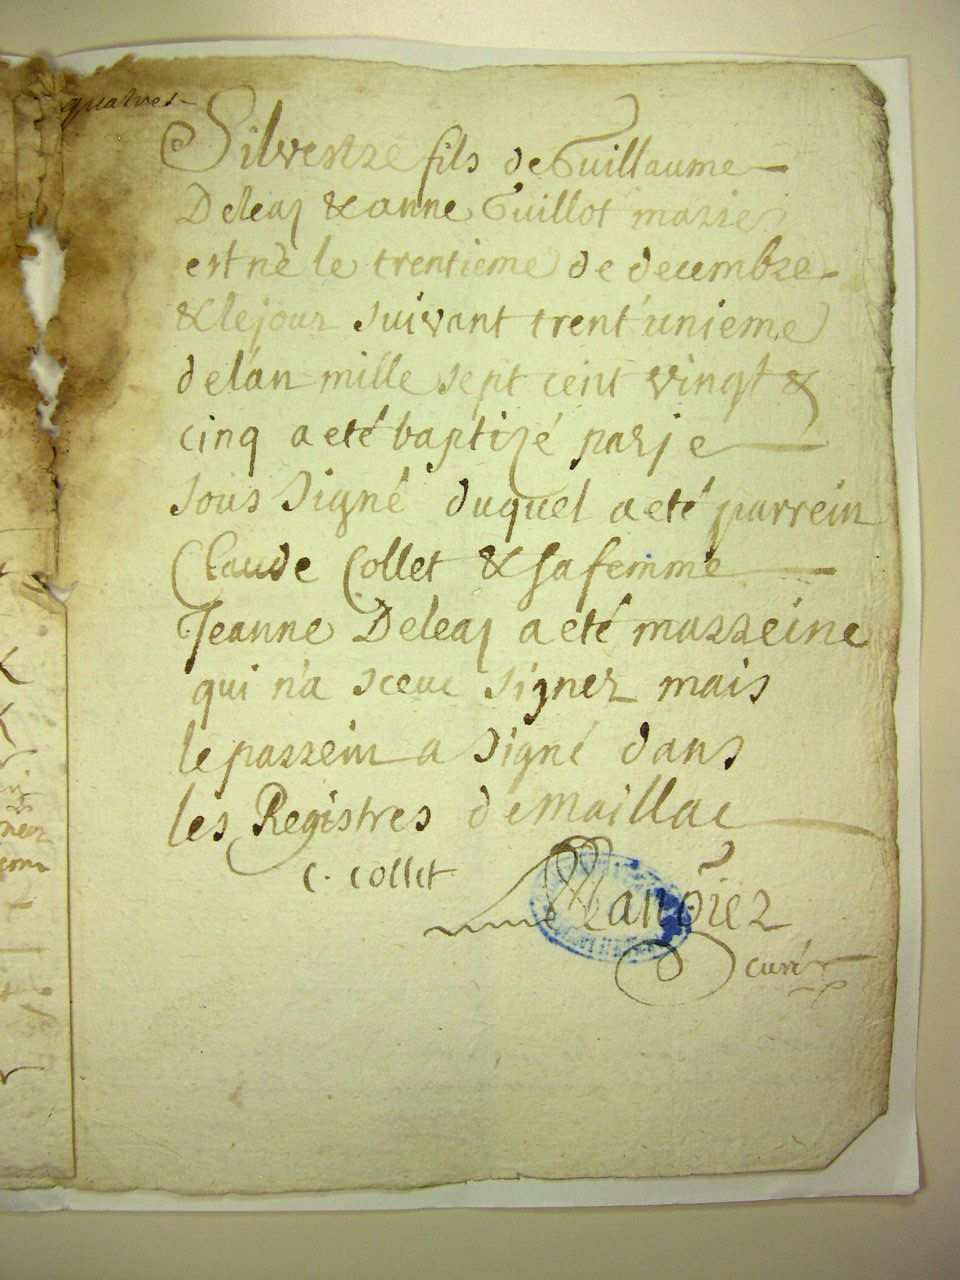 quatres
Silvestre fils de Guillaume
Deleas & anne Guillot marie
est nè le trentieme de decembre
& le jour suivant trent'unieme
de lan mille sept cent vingt &
cinq a eté baptizé par je
sous signé duquel a eté parrein
Claude Collet & sa femme
Jeanne Deleas a eté marreine
qui n'a sceue signer mais
le parrein a signé dans
les Registres de Maillac
C. Collet
curé